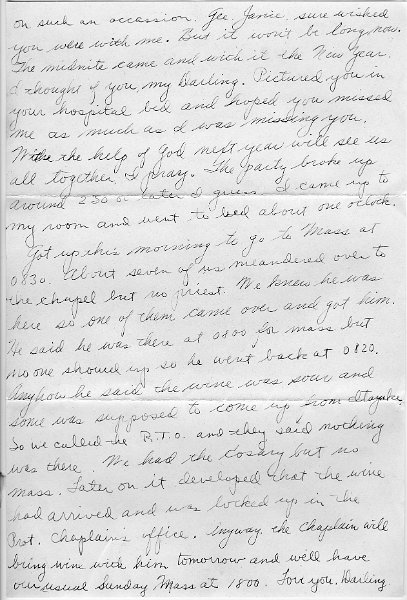 on such an occassion. Gee, Janie, sure wished
you were with me. But it won't be long, now.
The midnite came and with it the New Year.
I thought of you my Darling. Pictured you in
your hospital bed and hoped you missed
me as much as I was missing you.
With the help of God next year will see us
all together, I pray. The party broke up
around 230 or later I guess. I came up to
my room and went to bed about one oclock.
Got up this morning to go to Mass at
0830. About seven of us meandered over to
the chapel but no priest. We knew he was
here so one of them came over and got him.
He said he was there at 0800 for mass but
no one showed up so he went back at 0820.
Anyhow he said the wine was sour and
some was supposed to come up from
So we called the R.T.O. and they said nothing
was there. We had the Rosary but no
Mass. Later on it developed that the wine
had arrived and was locked up in the
Prot. Chaplain's office. Anyway, the chaplain will
bring wine with him tomorrow and we'll have
our usual Sunday Mass at 1800. Love you, Darling